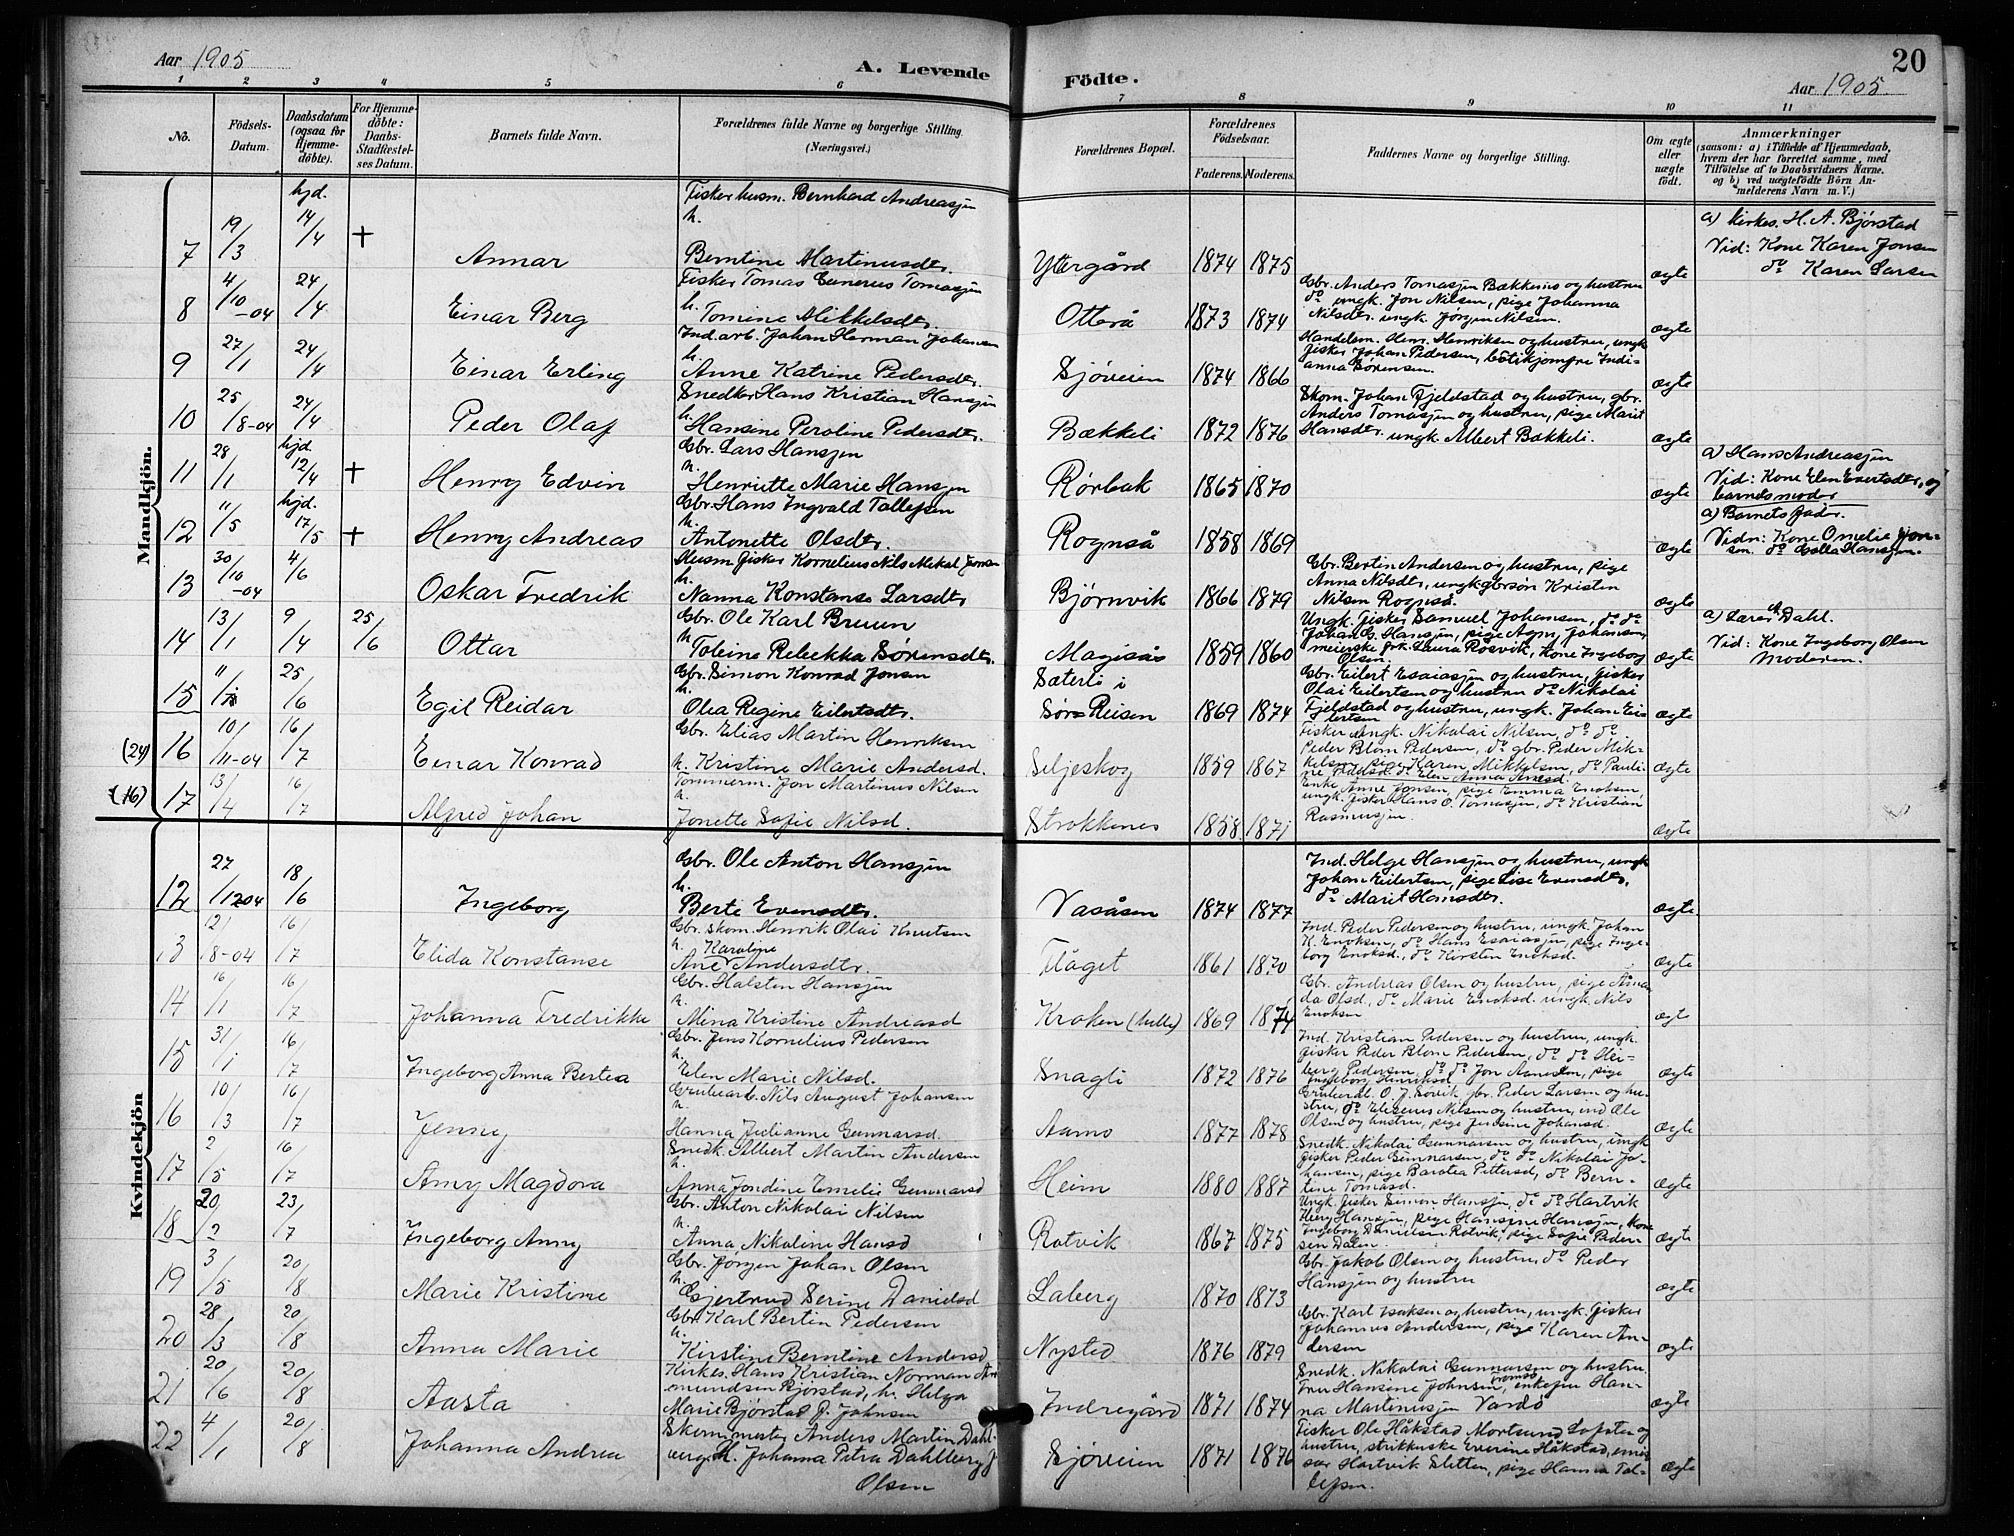 20
Aar 1905
A. Levende Födte.
Aar 1905
1 2 3 4 5 6 7 8 9 10 11
No.
Födsels-Datum.
Daabsdatum (ogsaa for Hjemme-döbte).
For Hjemme-döbte: Daabs-Stadfæstel-ses Datum.
Barnets fulde Navn.
Forældrenes fulde Navne og borgerlige Stilling. (Næringsvei.)
Forældrenes Bopæl.
Forældrenes Födselsaar.
Faderens. Moderens.
Faddernes Navne og borgerlige Stilling.
Om ægte eller uægte födt.
Anmærkninger
(saasom: a) i Tilfælde af Hjemmedaab, hvem der har forrettet samme, med Tilföielse af to Daabsvidners Navne. og b) ved uægtefödte Börn An-melderens Navn m. V.)
Mandkjön.
7 19/3 hjd. 14/4 + Annar
Fisker husm. Bernhard Andreasjen
h. Berntine Martinusdtr.
Ytergård 1874 1875 ægte
a) Kirkes. H. A. Bjørstad
Vid: Kone Karen Jonsen
do Karen Larsen
8 4/10-04 24/4 Einar Berg
Fisker Tomas Tomasjen
h. Tomine Mikkelsdtr.
Otterå 1873 1874
Gbr. Anders Tomasjen Bækkenes og hustru
do ungk. Jon Nilsen, pige Johanna
Nilsdtr. ungk. Jørgen Nilsen. ægte
9 27/1 24/4 Einar Erling
Ind. arb. Johan Herman Johansen
h. Anne Katrine Pedersdtr.
Sjøveien 1874 1866
Handelsm. Henr. Henriksen og hustru, ungk
fisker Johan Pedersen, butikjomfru Indi-
anna Sørensen. ægte
10 25/8-04 24/4 Peder Olaf
Snedker Hans Kristian Hansjen
h. Hansine Peroline Pedersdtr.
Bækkeli 1872 1876
Skom. Johan Fjeldstad og hustru, gbr.
Anders Tomasjen og hustru, pige Marit
Hansdtr. ungk. Albert Bakkeli. ægte
11 28/1 hjd. 12/4 + Henry Edvin
Gbr. Lars Hansjen
h. Henriette Marie Hansjen
Rørbak 1865 1870 ægte
a) Hans Andreasjen
Vid: Kone Elen Evertsdtr. og
barnets moder
12 11/5 hjd. 17/5 + Henry Andreas
Gbr. Hans Ingvald Tollefsen
h. Antonette Olsdtr.
Rognså 1858 1869 ægte
a) Barnets fader.
Vidn: Kone Omelie Jon-
sen. do Hansjen.
13 30/10-04 4/6 Oskar Fredrik
Husm fisker Kornelius Nils Mikal Jonsen
h. Nanna Konstanse Larsdtr
Bjørnvik 1866 1879
Gbr. Bertin Andersen og hustru, pige
Anna Nilsdtr, ungk gbrsøn Kristen
Nilsen Rognså. ægte
14 13/1 9/4 25/6 Ottar
Gbr. Ole Karl Bruun
h Tobine Rebekka Sørensdtr.
Magisås 1859 1860
Ungk. fisker Samuel Johansen, do do
Johan G. Hansjen, pige Agn. Johansen,
meierske frk. Laura Røsvik, Kone Ingeborg
Olsen. ægte
a) Lærer Dahl.
Vid: Kone Ingeborg Olsen
Moderen.
15 11/ 25/6 Egil Reidar
Gbr. Simon Konrad Jonsen
h. Olea Regine Eilertsdtr.
Sæterli i
Sørs Reisen 1869 1874
Gbr. Eilert Esaiasjen og hustru, fisker
Olai Eilertsen og hustru do Nikolai
Fjeldstad og hustru, ungk. Johan Ei-
lertsen ægte
(24) 16 10/11-04 16/7 Einar Konrad
Gbr. Elias Martin Henriksen
h. Kristine Marie Andersd.
Seljeskog 1859 1867
Fisker ungk. Nikolai Nilsen, do do
Peder Blom Pedersen, do gbr. Peder Mik-
kelsen, pige Karen Mikkelsen, do Pauli-
ne do Elen Anna ægte
(16) 17 13/4 16/7 Alfred Johan
Tømmerm. Jon Martinus Nilsen
h. Jonette Sofie Nilsd.
Strokkenes 1858 1871
Enke Anne Jonsen, pige Emma Enoksen,
ungk. fisker Hans O. Tomasjen, do Kristian
Rasmusjen. ægte
Kvindekjön
12 27/12 04 18/6 Ingeborg
Gbr. Ole Anton Hansjen
h. Berte Evensdtr.
Vasåsen 1874 1877
Ind. Helge Hansjen og hustru, ungk
Johan Eilertsen, pige Lise Evensdtr.
do Marit Hansdtr. ægte
13 21/8-04 16/7 Elida Konstanse
Gbr. skom. Henrik Olai Knutsen
h. Ane Karoline Andersdtr.
Flåget 1861 1870
Ind. Peder Pedersen og hustru, ungk. Johan
K. Enoksen, do Hans Esaiasjen, pige Inge-
borg Enoksd., do Kirsten Enoksd. ægte
14 16/1 16/7 Johanna Fredrikke
Gbr. Halsten Hansjen
h. Mina Kristine Andreasd
Kroken (hulle) 1869 1874
Gbr. Andreas Olsen og hustru, pige Aman
da Olsd, do Marie Enoksd. ungk. Nils
Enoksen ægte
15 31/1 16/7 Ingeborg Anna Bertea
Gbr. Jens Kornelius Pedersen
h. Elen Marie Nilsd.
Snagli 1872 1876
Ind. Kristian Pedersen og hustru, ungk.
fisker Peder Blom Pedersen, do do
berg Pedersen, do do Jon, pige
Ingeborg Henriksd ægte
16 10/3 16/7 Jenny
Grubearb. Nils August Johansen
h. Hanna Julianne Gunnarsd.
Aamo 1877 1878
Grubearb. O. J. Sørvik gbr. Peder Larsen og hu-
stru, do Elesenus Nilsen og hustru, ind Ole
Olsen og hustru, pige Jensine Johansd. ægte
17 2/5 16/7 Amy Magdora
Snedk. Albert Martin Andersen
h. Anna Jondine Emelie Gunnarsd
Heim 1880 1887
Snedk. Nikolai Gunnarsen og hustru, ungk
fisker Peder Gunnarsen, do do Nikolai Jo-
hansen, pige Barolea Pettersd, do Bern-
tine Tomasd. ægte
18 20/2 23/7 Ingeborg Anny
Gbr. Anton Nikolai Nilsen
h. Anna Nikoline Hansd
Rotvik 1867 1875
Ungk. fisker Simon Hansjen, do do Hartvik
Berg Hansjen, pige Hansine Hansjen, kone
Ingeborg Danielsen Rotvik, pige Sofie Peder-
sen Dalen ægte
19 3/5 20/8 Marie Kristine
Gbr. Jørgen Johan Olsen
h. Gjertrud Serine Danielsd
Laberg 1870 1873
Gbr. Jakob Olsen og hustru, do Peder
Hansjen og hustru ægte
20 28/3 20/8 Anna Marie
Gbr. Karl Bertin Pedersen
h. Kirstine Berntine Andersd
Nysted 1876 1879
Gbr. Karl Isaksen og hustru, ungk. fisker
Johannes Andersen, pige Karen An-
dersen ægte
21 20/6 20/8 Aasta
Kirkes. Hans Kristian Norman A
mundsen Bjørstad, h. Helga
Marie Bjørstad f. Johnsen
Indregård 1871 1874
Snedk. Nikolai Gunnarsen og hustru
Fru Hansine Johnsen Tromsø, enkefru Han-
na Martinusjen Vardø ægte
22 4/1 20/8 Johanna Andrea
Skommester Anders Martin Dahl-
berg, h. Johanna Petra Dahlberg f
Olsen
Sjøveien 1871 1876
Fisker Ole Håkstad Mortsund Lofoten og
hustru, strikkerske Everine Håkstad,
Hartvik Sletten, pige Hanna Tol-
lefsen. ægte